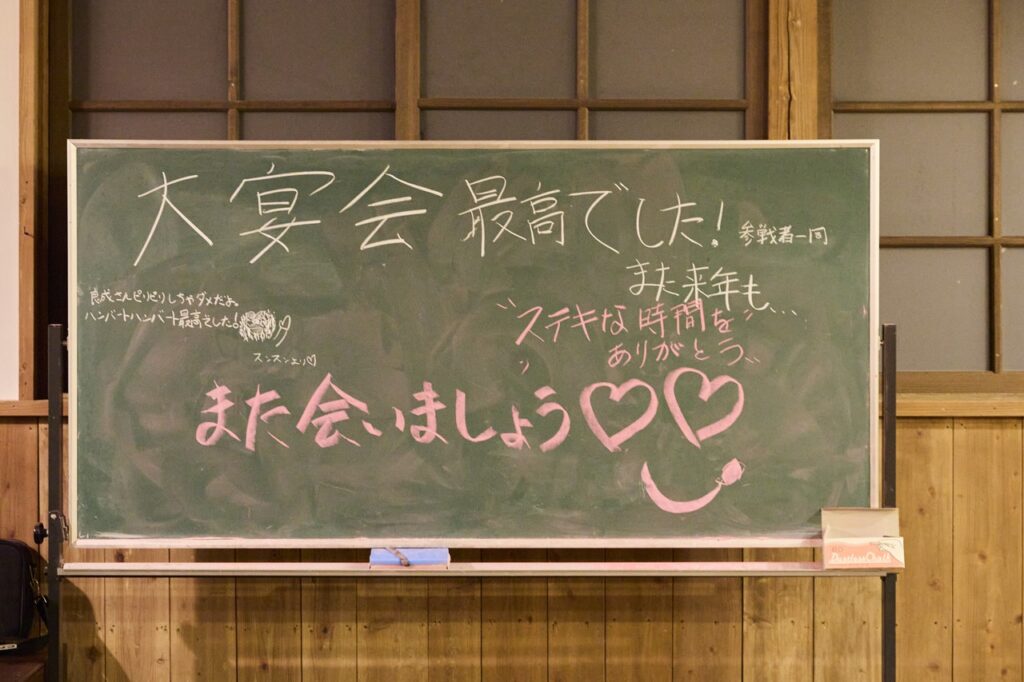 大宴会 最高でした! 参戦者一同
また来年も...
"ステキな時間を
ありがとう"
良成さんピリピリしちゃダメだよ。
ハンバートハンバート最高でした!
スンスンエリ♡
また会いましょう♡♡
DustlessChalk